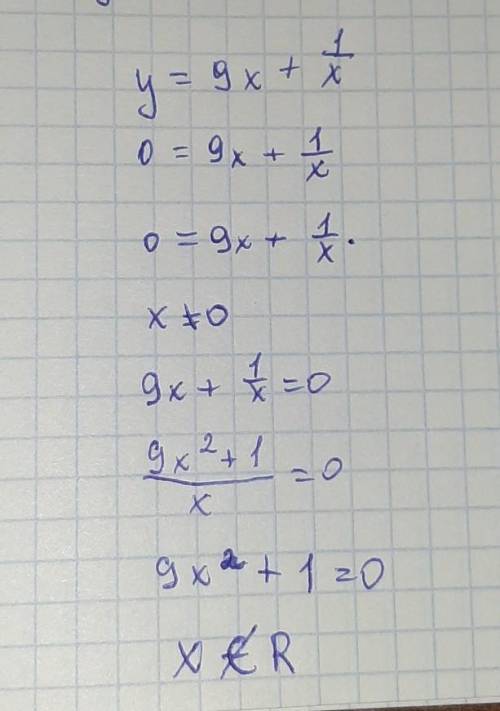 y = 9x + 1/x
0 = 9x + 1/x
0 = 9x + 1/x.
x ≠ 0
9x + 1/x = 0
(9x² + 1)/x = 0
9x² + 1 = 0
x ∉ R